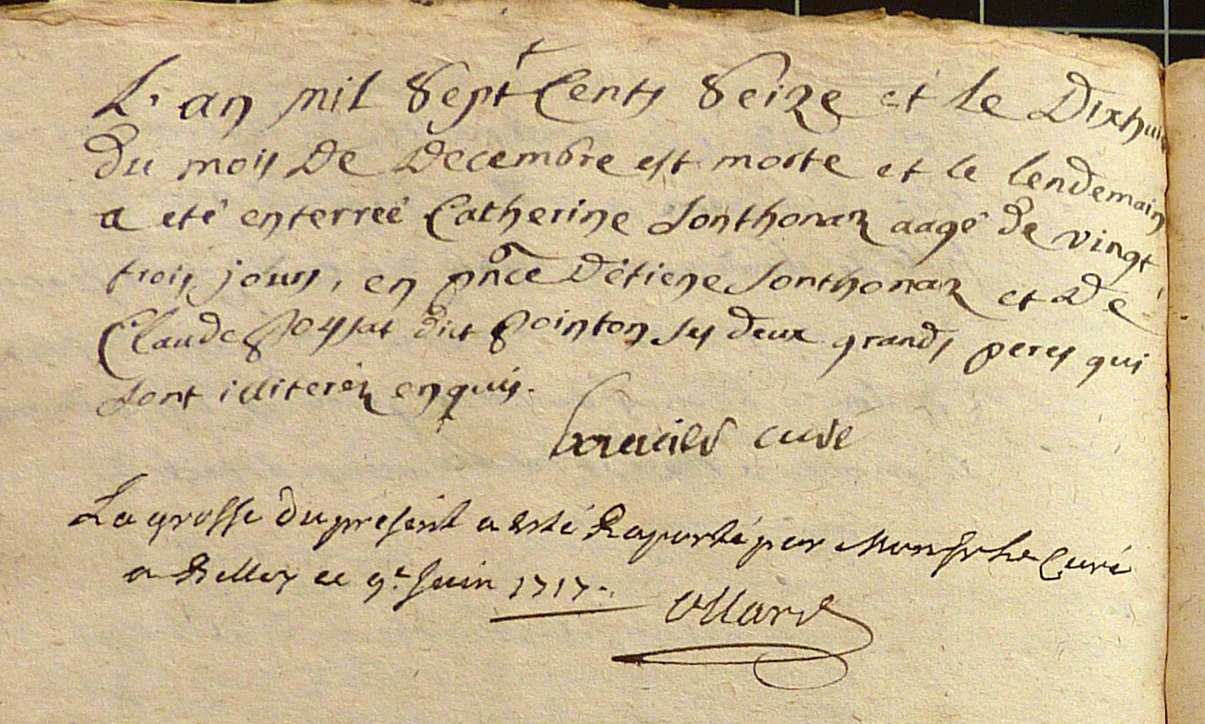 L'an mil Sept Cents Seize et le Dixhuit
du mois De Decembre est morte et le lendemain
a eté enterreé Catherine Sonthonaz aagé de vingt
trois jours, en pñce D'étiene Sonthonaz et De
Claude dict pointon ses deux grands peres qui
sont illiteréz enquis.
curé
La grosse du present a esté Raporté par Monsr Le Curé
a Belley ce 9e Juin 1717.